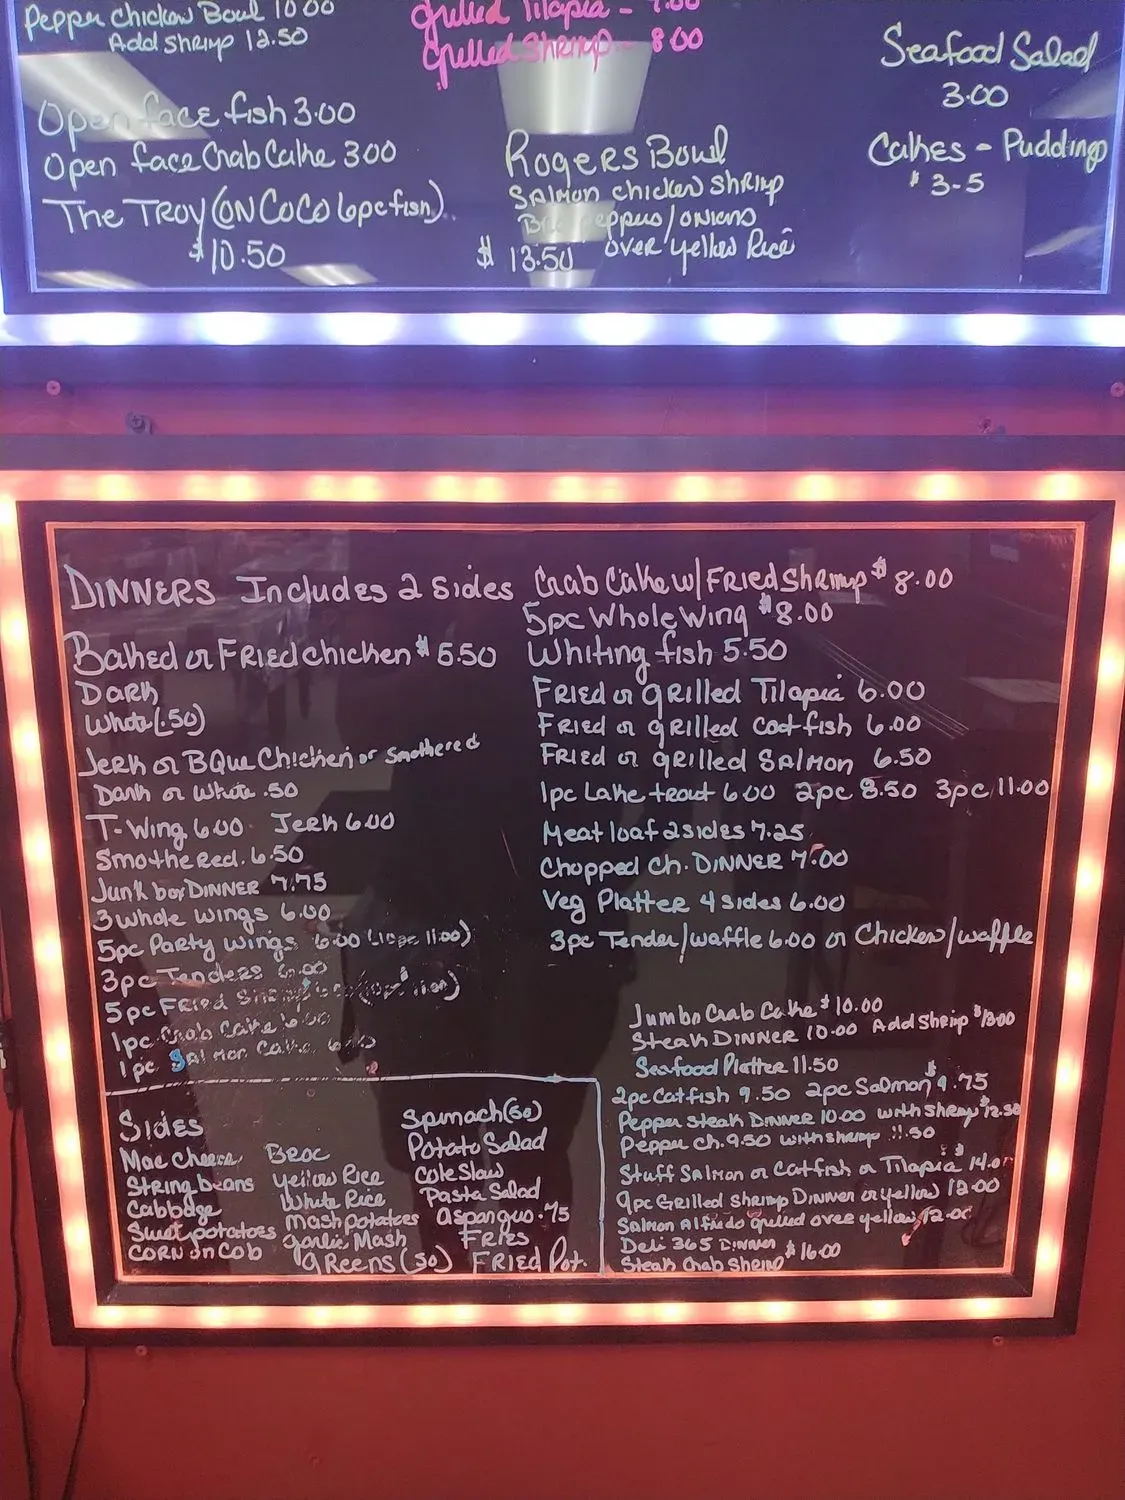 Pepper Chicken Bowl 10.00
Add Shrimp 12.50
Open face fish 3.00
Open face Crab Cake 3.00
The Troy (on CoCo 6pc fish)
$10.50
Grilled Tilapia - 7.00
Grilled Shrimp - 8.00
Rogers Bowl
Salmon chicken shrimp
peppers/onions
over yellow Rice
$ 13.50
Seafood Salad
3.00
Cakes - Pudding
$ 3-5
Dinners Includes 2 Sides
Baked or Fried chicken $ 5.50
Dark
White (.50)
Jerk or BQue Chicken or Smothered
Dark or White .50
T-Wing 6.00 Jerk 6.00
Smothered. 6.50
Junk box Dinner 7.75
3 whole wings 6.00
5pc Party Wings 6.00 (10pc 11.00)
3pc Tenders 6.00
5pc Fried Shrimp
1pc Crab Cake 6.00
1pc Salmon Cake
Crab Cake w/ Fried Shrimp $ 8.00
5pc Whole Wing $8.00
Whiting fish 5.50
Fried or grilled Tilapia 6.00
Fried or grilled Catfish 6.00
Fried or grilled Salmon 6.50
1pc Lake trout 6.00 2pc 8.50 3pc 11.00
Meat loaf 2 sides 7.25
Chopped Ch. Dinner 7.00
Veg Platter 4 Sides 6.00
3pc Tender/waffle 6.00 or Chicken/waffle
Jumbo Crab Cake $ 10.00
Steak Dinner 10.00 Add Shrimp
Seafood Platter 11.50
2pc Catfish 9.50 2pc Salmon $9.75
Pepper Steak Dinner 10.00 with Shrimp $12.50
Pepper Ch. 9.50 with shrimp 11.50
Stuff Salmon or Catfish or Tilapia 14.00
9pc Grilled Shrimp Dinner or yellow 12.00
Salmon Alfredo grilled over yellow 12.00
Deli 365 Dinner $ 16.00
Steak Crab Shrimp
Sides
Mac Cheese
String beans
Cabbage
Sweet potatoes
Corn on Cob
Broc
Yellow Rice
White Rice
Mash potatoes
Garlic Mash
Greens (50)
Spinach (50)
Potato Salad
Cole Slaw
Pasta Salad
Asparagus .75
Fries
Fried Pot.